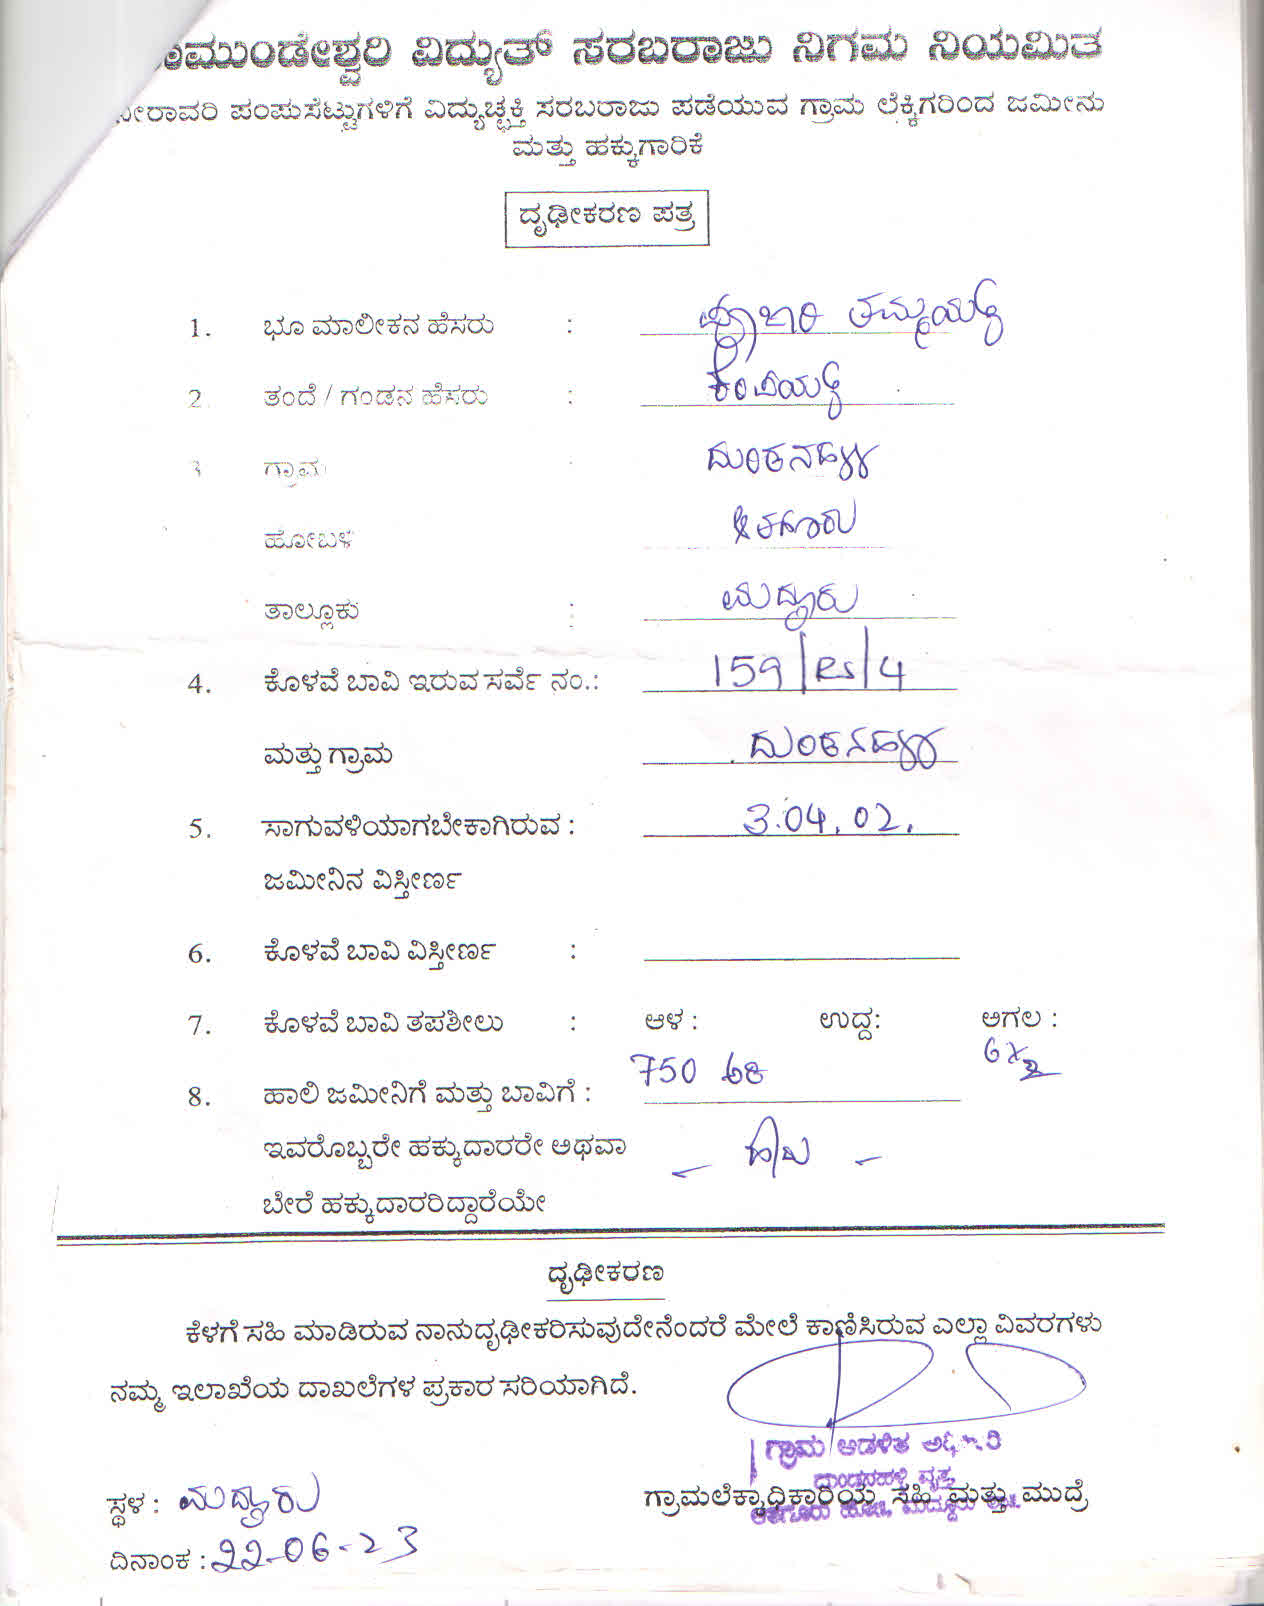 ಮುಂಡೇಶ್ವರಿ ವಿದ್ಯುತ್ ಸರಬರಾಜು ನಿಗಮ ನಿಯಮಿತ
ನೀರಾವರಿ ಪಂಪುಸೆಟ್ಟುಗಳಿಗೆ ವಿದ್ಯುಚ್ಛಕ್ತಿ ಸರಬರಾಜು ಪಡೆಯುವ ಗ್ರಾಮ ಲೆಕ್ಕಿಗರಿಂದ ಜಮೀನು
ಮತ್ತು ಹಕ್ಕುಗಾರಿಕೆ
ದೃಢೀಕರಣ ಪತ್ರ
1. ಭೂ ಮಾಲೀಕನ ಹೆಸರು : ಪೂಜಾರಿ ತಮ್ಮಯ್ಯ
2. ತಂದೆ / ಗಂಡನ ಹೆಸರು :
3 ಗ್ರಾಮ
ಹೋಬಳಿ
ತಾಲ್ಲೂಕು : ಮದ್ದೂರು
4. ಕೊಳವೆ ಬಾವಿ ಇರುವ ಸರ್ವೆ ನಂ.: 159/ /4
ಮತ್ತು ಗ್ರಾಮ
5. ಸಾಗುವಳಿಯಾಗಬೇಕಾಗಿರುವ : 3.04.02.
ಜಮೀನಿನ ವಿಸ್ತೀರ್ಣ
6. ಕೊಳವೆ ಬಾವಿ ವಿಸ್ತೀರ್ಣ :
7. ಕೊಳವೆ ಬಾವಿ ತಪಶೀಲು : ಆಳ : ಉದ್ದ: ಅಗಲ :
750
8. ಹಾಲಿ ಜಮೀನಿಗೆ ಮತ್ತು ಬಾವಿಗೆ :
ಇವರೊಬ್ಬರೇ ಹಕ್ಕುದಾರರೇ ಅಥವಾ
ಬೇರೆ ಹಕ್ಕುದಾರರಿದ್ದಾರೆಯೇ
ದೃಢೀಕರಣ
ಕೆಳಗೆ ಸಹಿ ಮಾಡಿರುವ ನಾನುದೃಢೀಕರಿಸುವುದೇನೆಂದರೆ ಮೇಲೆ ಕಾಣಿಸಿರುವ ಎಲ್ಲಾ ವಿವರಗಳು
ನಮ್ಮ ಇಲಾಖೆಯ ದಾಖಲೆಗಳ ಪ್ರಕಾರ ಸರಿಯಾಗಿದೆ.
ಗ್ರಾಮ ಆಡಳಿತ
ಸ್ಥಳ : ಮದ್ದೂರು
ಗ್ರಾಮಲೆಕ್ಕಾಧಿಕಾರಿಯ ಸಹಿ ಮತ್ತು ಮುದ್ರೆ
ದಿನಾಂಕ : 22-06-23